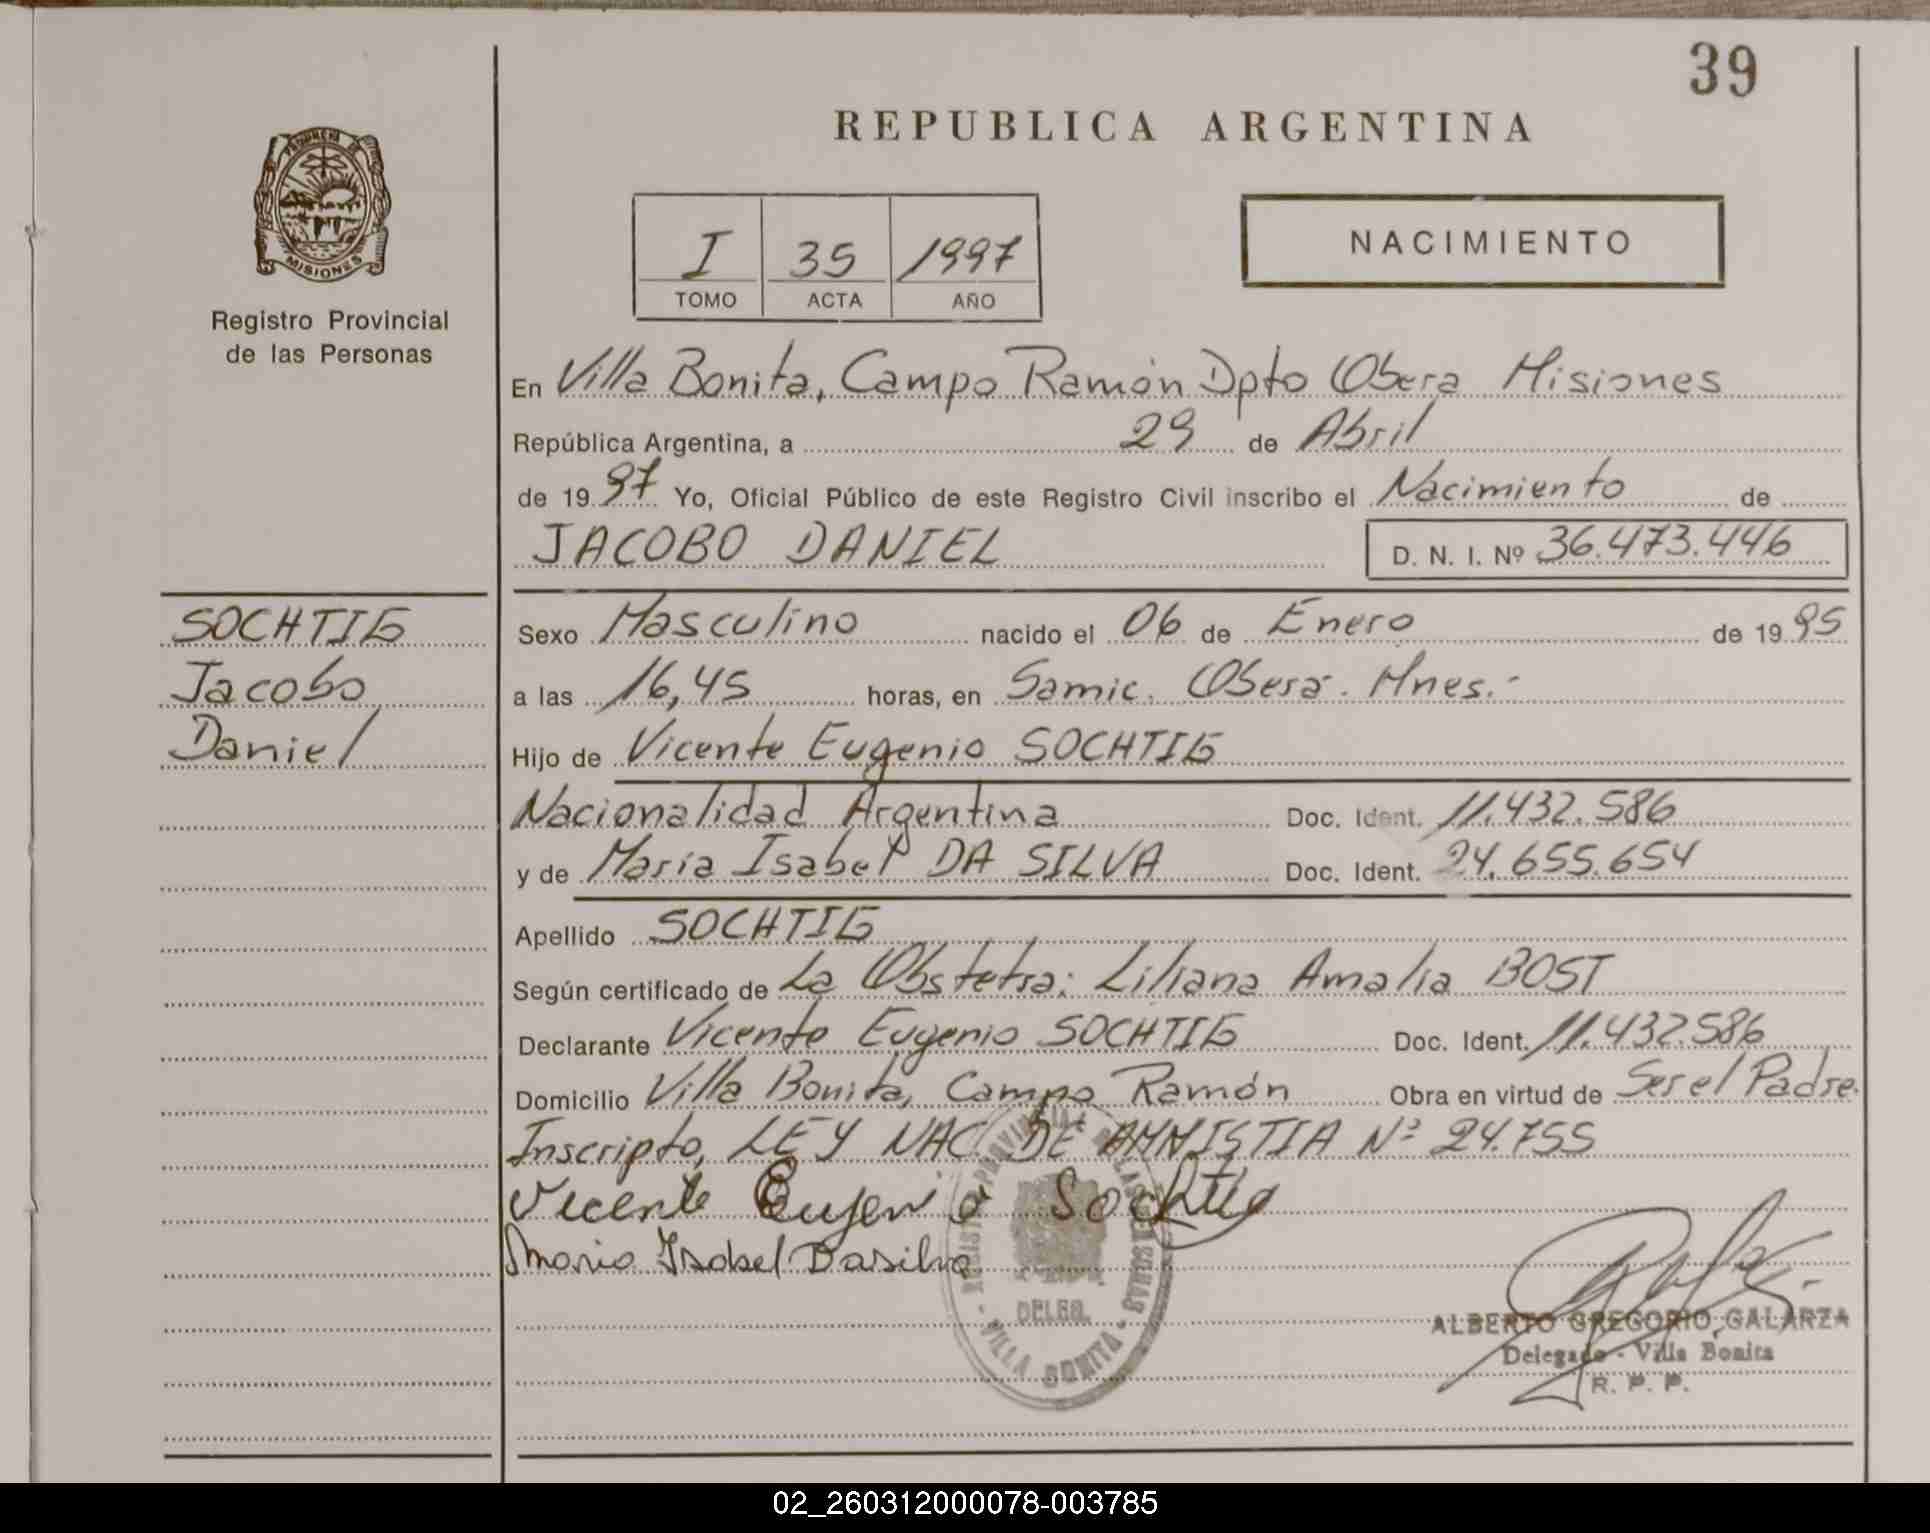 39
REPUBLICA ARGENTINA
PROVINCIA DE
MISIONES
Registro Provincial
de las Personas
I 35 1997
TOMO ACTA AÑO
NACIMIENTO
En Villa Bonita, Campo Ramón Dpto Obera Misiones
República Argentina, a 29 de Abril
de 19 97 Yo, Oficial Público de este Registro Civil inscribo el Nacimiento de
JACOBO DANIEL D. N. I. Nº 36.473.446
SOCHTIG
Jacobo
Daniel
Sexo Masculino nacido el 06 de Enero de 19 95
a las 16,45 horas, en Samic. Oberá. Mnes.-
Hijo de Vicente Eugenio SOCHTIG
Nacionalidad Argentina Doc. Ident. 11.432.586
y de María Isabel DA SILVA Doc. Ident. 24.655.654
Apellido SOCHTIG
Según certificado de La Obstetra: Liliana Amalia BOST
Declarante Vicente Eugenio SOCHTIG Doc. Ident. 11.432.586
Domicilio Villa Bonita, Campo Ramón Obra en virtud de Ser el Padre.
Inscripto, LEY NAC. DE AMNISTIA Nº 24.755
Vicente Eugenio Sochtig
Maria Isabel Dasilva
REGISTRO PROVINCIAL DE LAS PERSONAS
DELEG.
- VILLA BONITA -
ALBERTO GREGORIO GALARZA
Delegado - Villa Bonita
R. P. P.
02_260312000078-003785